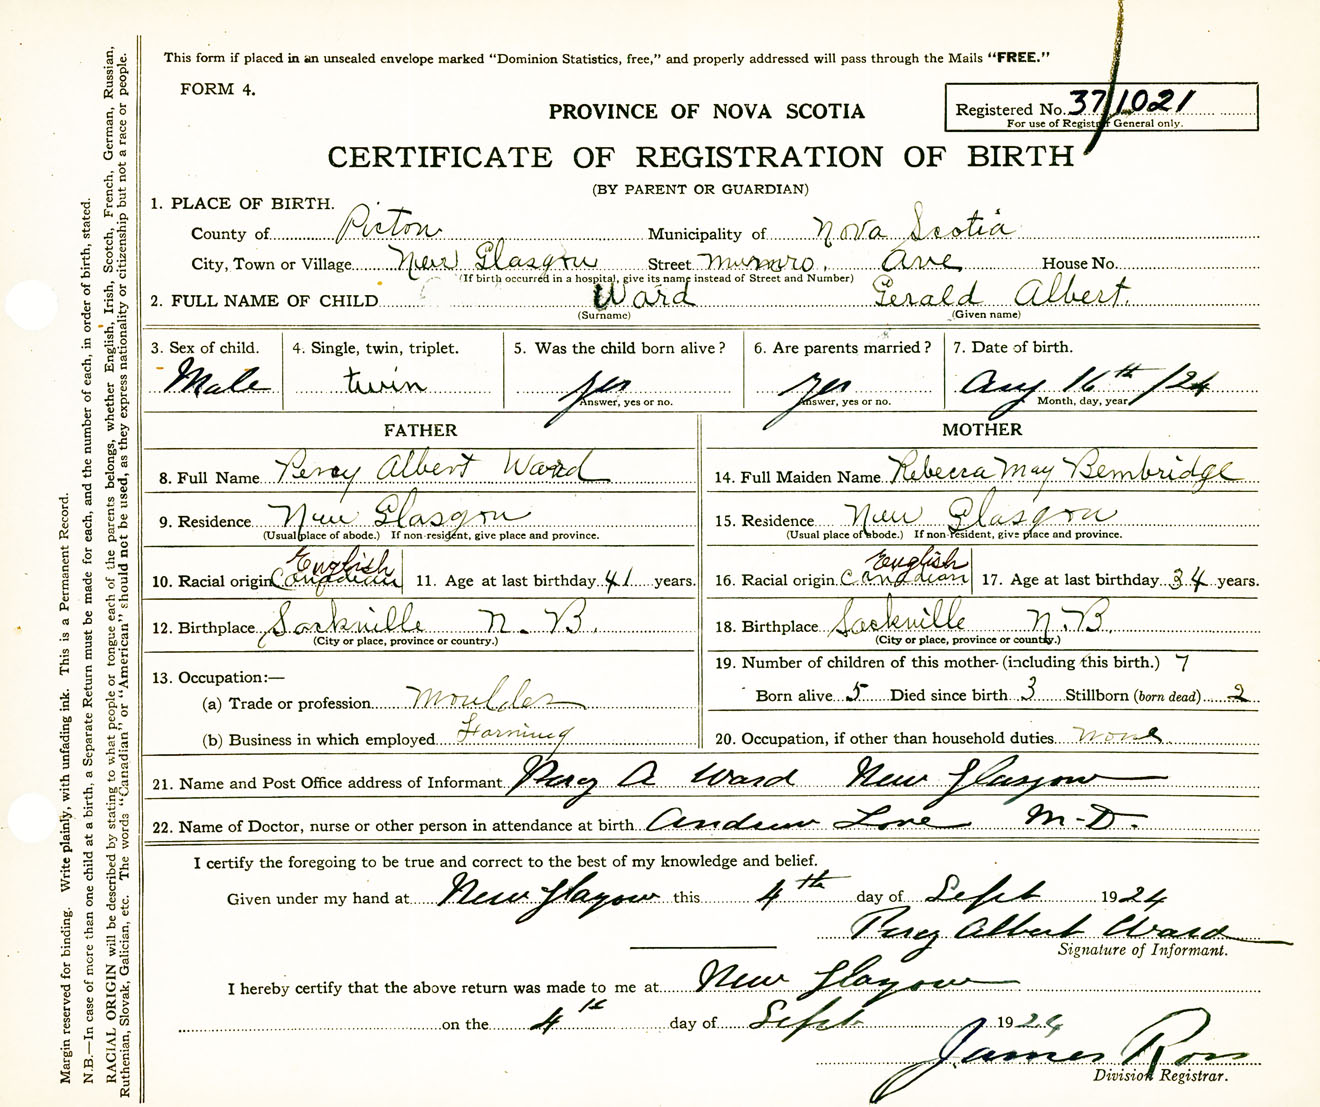 This form if placed in an unsealed envelope marked “Dominion Statistics, free,” and properly addressed will pass through the Mails “FREE.”
FORM 4.
Registered No. 37/1021
For use of Registrar General only.
PROVINCE OF NOVA SCOTIA
CERTIFICATE OF REGISTRATION OF BIRTH
(BY PARENT OR GUARDIAN)
1. PLACE OF BIRTH.
County of Pictou Municipality of Nova Scotia
City, Town or Village New Glasgow Street Munro Ave House No.
(If birth occurred in a hospital, give its name instead of Street and Number)
2. FULL NAME OF CHILD Ward Gerald Albert.
(Surname) (Given name)
3. Sex of child. 4. Single, twin, triplet. 5. Was the child born alive? 6. Are parents married? 7. Date of birth.
Male twin yes yes Aug 16th /24
Answer, yes or no. Answer, yes or no. Month, day, year
FATHER MOTHER
8. Full Name Percy Albert Ward 14. Full Maiden Name Rebecca May Bembridge
9. Residence New Glasgow 15. Residence New Glasgow
(Usual place of abode.) If non-resident, give place and province. (Usual place of abode.) If non-resident, give place and province.
English English
10. Racial origin Canadian 11. Age at last birthday 41 years. 16. Racial origin Canadian 17. Age at last birthday 34 years.
12. Birthplace Sackville N.B. 18. Birthplace Sackville N.B.
(City or place, province or country.) (City or place, province or country.)
13. Occupation:— 19. Number of children of this mother (including this birth.) 7
(a) Trade or profession Moulder Born alive 5 Died since birth 3 Stillborn (born dead) 2
(b) Business in which employed Farming 20. Occupation, if other than household duties none
21. Name and Post Office address of Informant Percy A Ward New Glasgow
22. Name of Doctor, nurse or other person in attendance at birth Andrew Love M-D.
I certify the foregoing to be true and correct to the best of my knowledge and belief.
Given under my hand at New Glasgow this 4th day of Sept 1924
Percy Albert Ward
Signature of Informant.
I hereby certify that the above return was made to me at New Glasgow
on the 4th day of Sept 1924
James Ross
Division Registrar.
Margin reserved for binding. Write plainly, with unfading ink. This is a Permanent Record.
N.B.—In case of more than one child at a birth, a Separate Return must be made for each, and the number of each, in order of birth, stated.
RACIAL ORIGIN will be described by stating to what people or tongue each of the parents belongs, whether English, Irish, Scotch, French, German, Russian,
Ruthenian, Slovak, Galician, etc. The words “Canadian” or “American” should not be used, as they express nationality or citizenship but not a race or people.